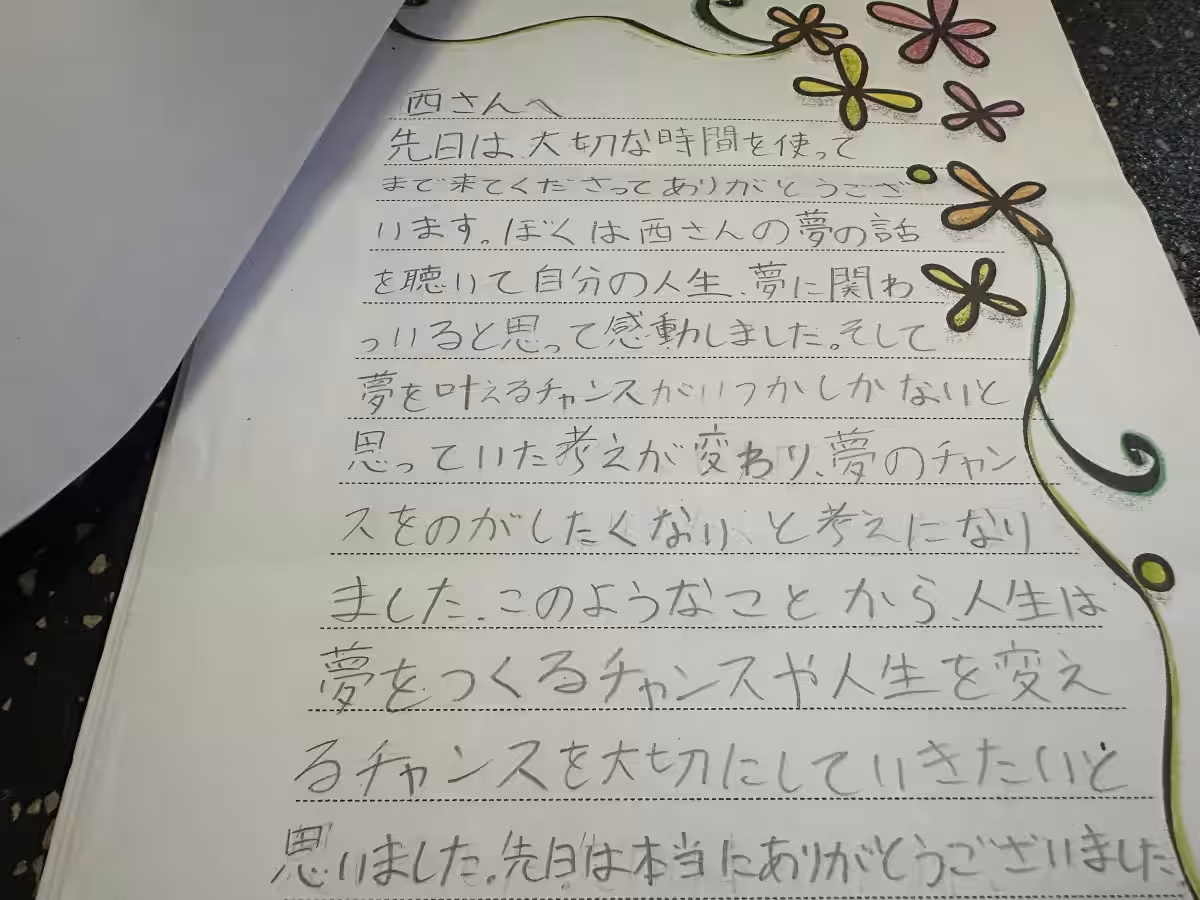 西さんへ
先日は、大切な時間を使って
まで来てくださってありがとうござ
います。ぼくは西さんの夢の話
を聴いて自分の人生、夢に関わ
っいると思って感動しました。そして
夢を叶えるチャンスがいつかしかないと
思っていた考えが変わり、夢のチャン
スをのがしたくない、と考えになり
ました。このようなことから、人生は
夢をつくるチャンスや人生を変え
るチャンスを大切にしていきたいと
思いました。先日は本当にありがとうございました。